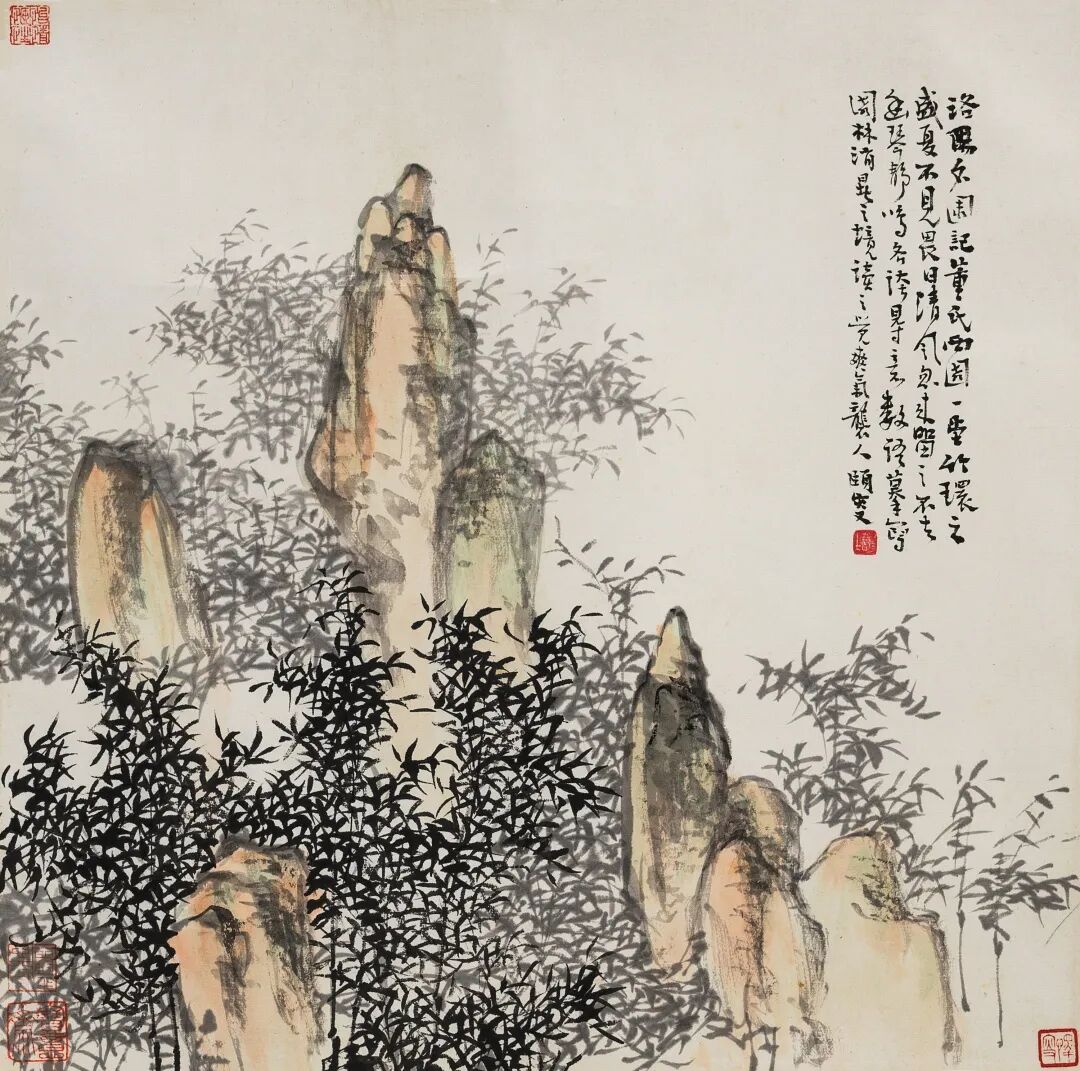 洛陽名園記董氏西園一堂竹環之
盛夏不見畏日清風忽來留之不去
幽禽靜鳴各誇得意數語摹寫
園林消暑之境讀之覺爽氣襲人 頤叟